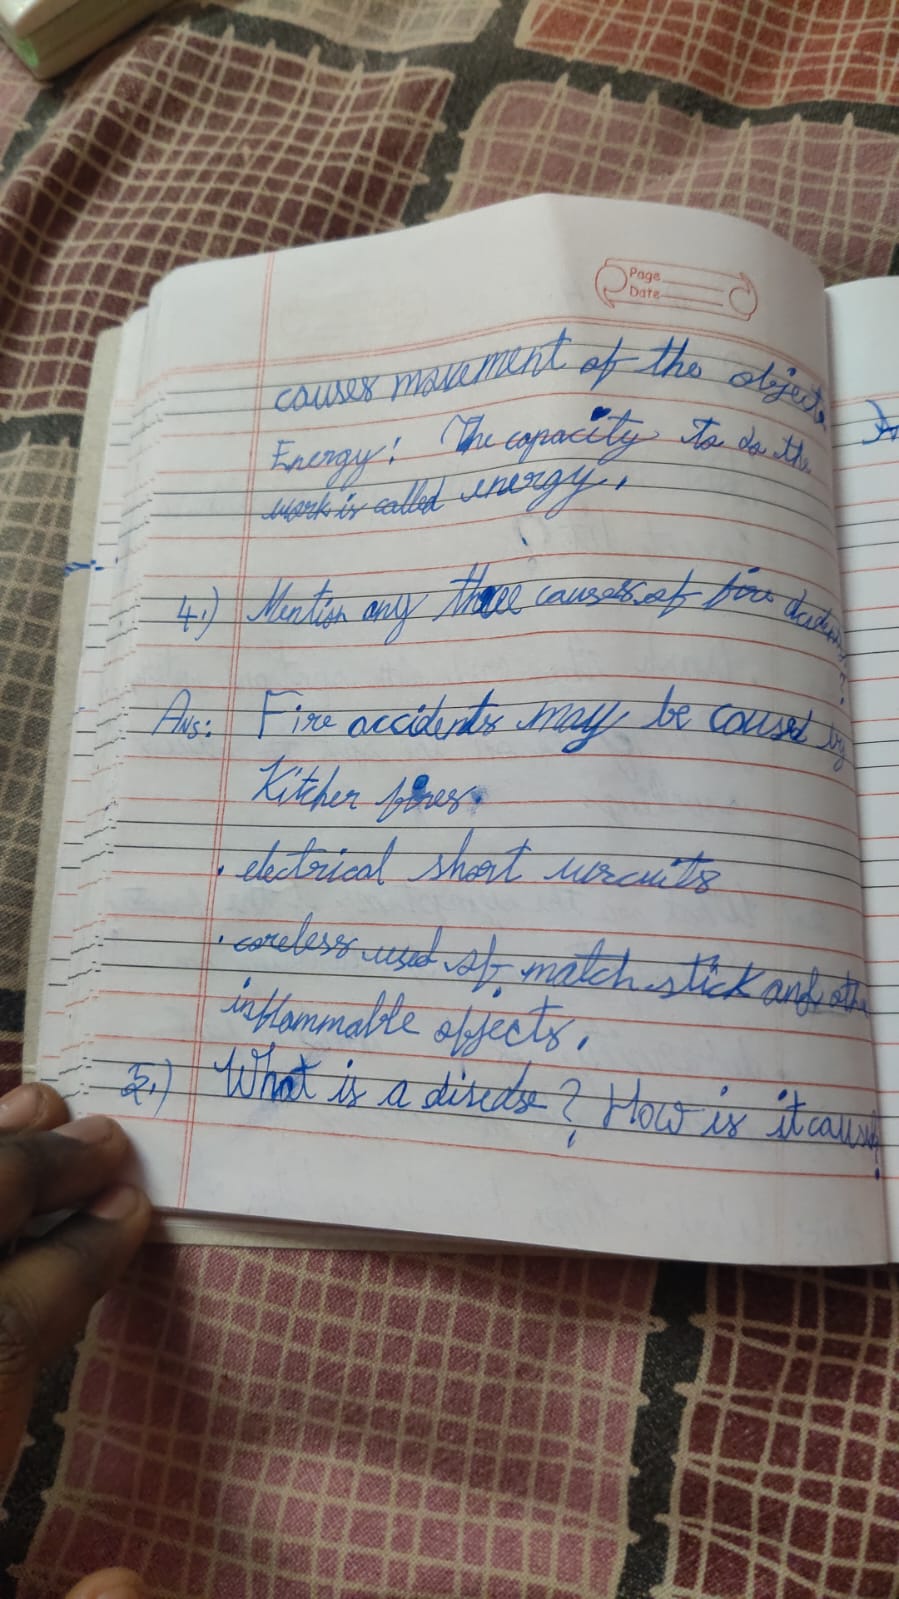 Page
Date
causes movement of the object.
Energy: The capacity to do the
work is called energy.
4.) Mention any three causes of fire
Ans: Fire accidents may be caused by
Kitcher fires.
. electrical short urcuits
. careless used of match stick and othe
inflammable offjects.
5.) What is a disedse? How is it caus